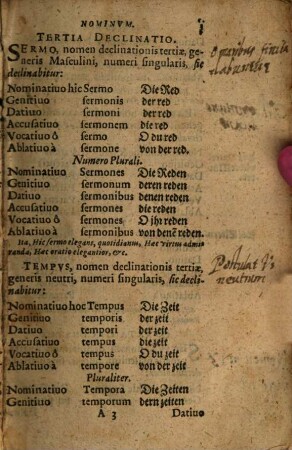 NOMINVM.
TERTIA DECLINATIO.
SERMO, nomen declinationis tertiæ, ge-
neris Masculini, numeri singularis, sic
declinabitur:
Nominatiuo hic Sermo Die Red
Genitiuo sermonis der red
Datiuo sermoni der red
Accusatiuo sermonem die red
Vocatiuo ô sermo O du red
Ablatiuo à sermone von der red.
Numero Plurali.
Nominatiuo Sermones Die Reden
Genitiuo sermonum deren reden
Datiuo sermonibus denen reden
Accusatiuo sermones die reden
Vocatiuo ô sermones O ihr reden
Ablatiuo à sermonibus von denē reden.
Ita, Hic sermo elegans, quotidianus, Hæc virtus admi-
randa, Hæc oratio elegantior, &c.
TEMPVS, nomen declinationis tertiæ,
generis neutri, numeri singularis, sic decli-
nabitur:
Nominatiuo hoc Tempus Die Zeit
Genitiuo temporis der zeit
Datiuo tempori der zeit
Accusatiuo tempus die zeit
Vocatiuo ô tempus O du zeit
Ablatiuo à tempore von der zeit
Pluraliter.
Nominatiuo Tempora Die Zeiten
Genitiuo temporum dern zeiten
A 3 Datiuo